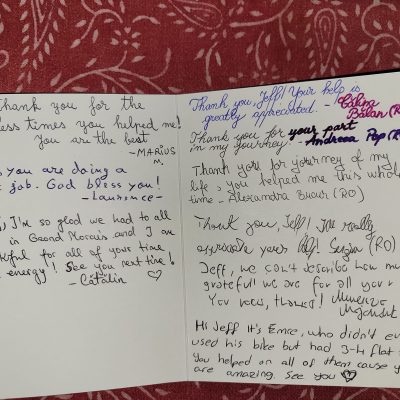 Thank you for the
less times you helped me!
You are the best
- MARIUS
M.
you are doing a
job. God bless you!
- Laurence -
I'm so glad we had to all
in Grand Morais and I am
for all of your time
energy! See you next time!
- Cătălin ♡
Thank you, Jeff! Your help is
greatly appreciated. -
Bălan (R
Thank you for your part
in my journey. - Andreea Pop (R
Thank you for journey of my
life, you helped me this whole
time - Alexandra (RO)
Thank you, Jeff! We really
appreciate your (RO)
Jeff, we can't describe how much
grateful we are for all your
You rock, thanks!
Hi Jeff It's Emre, who didn't ev
used his bike but had 3-4 flat
You helped on all of them cause y
are amazing. See you ♡